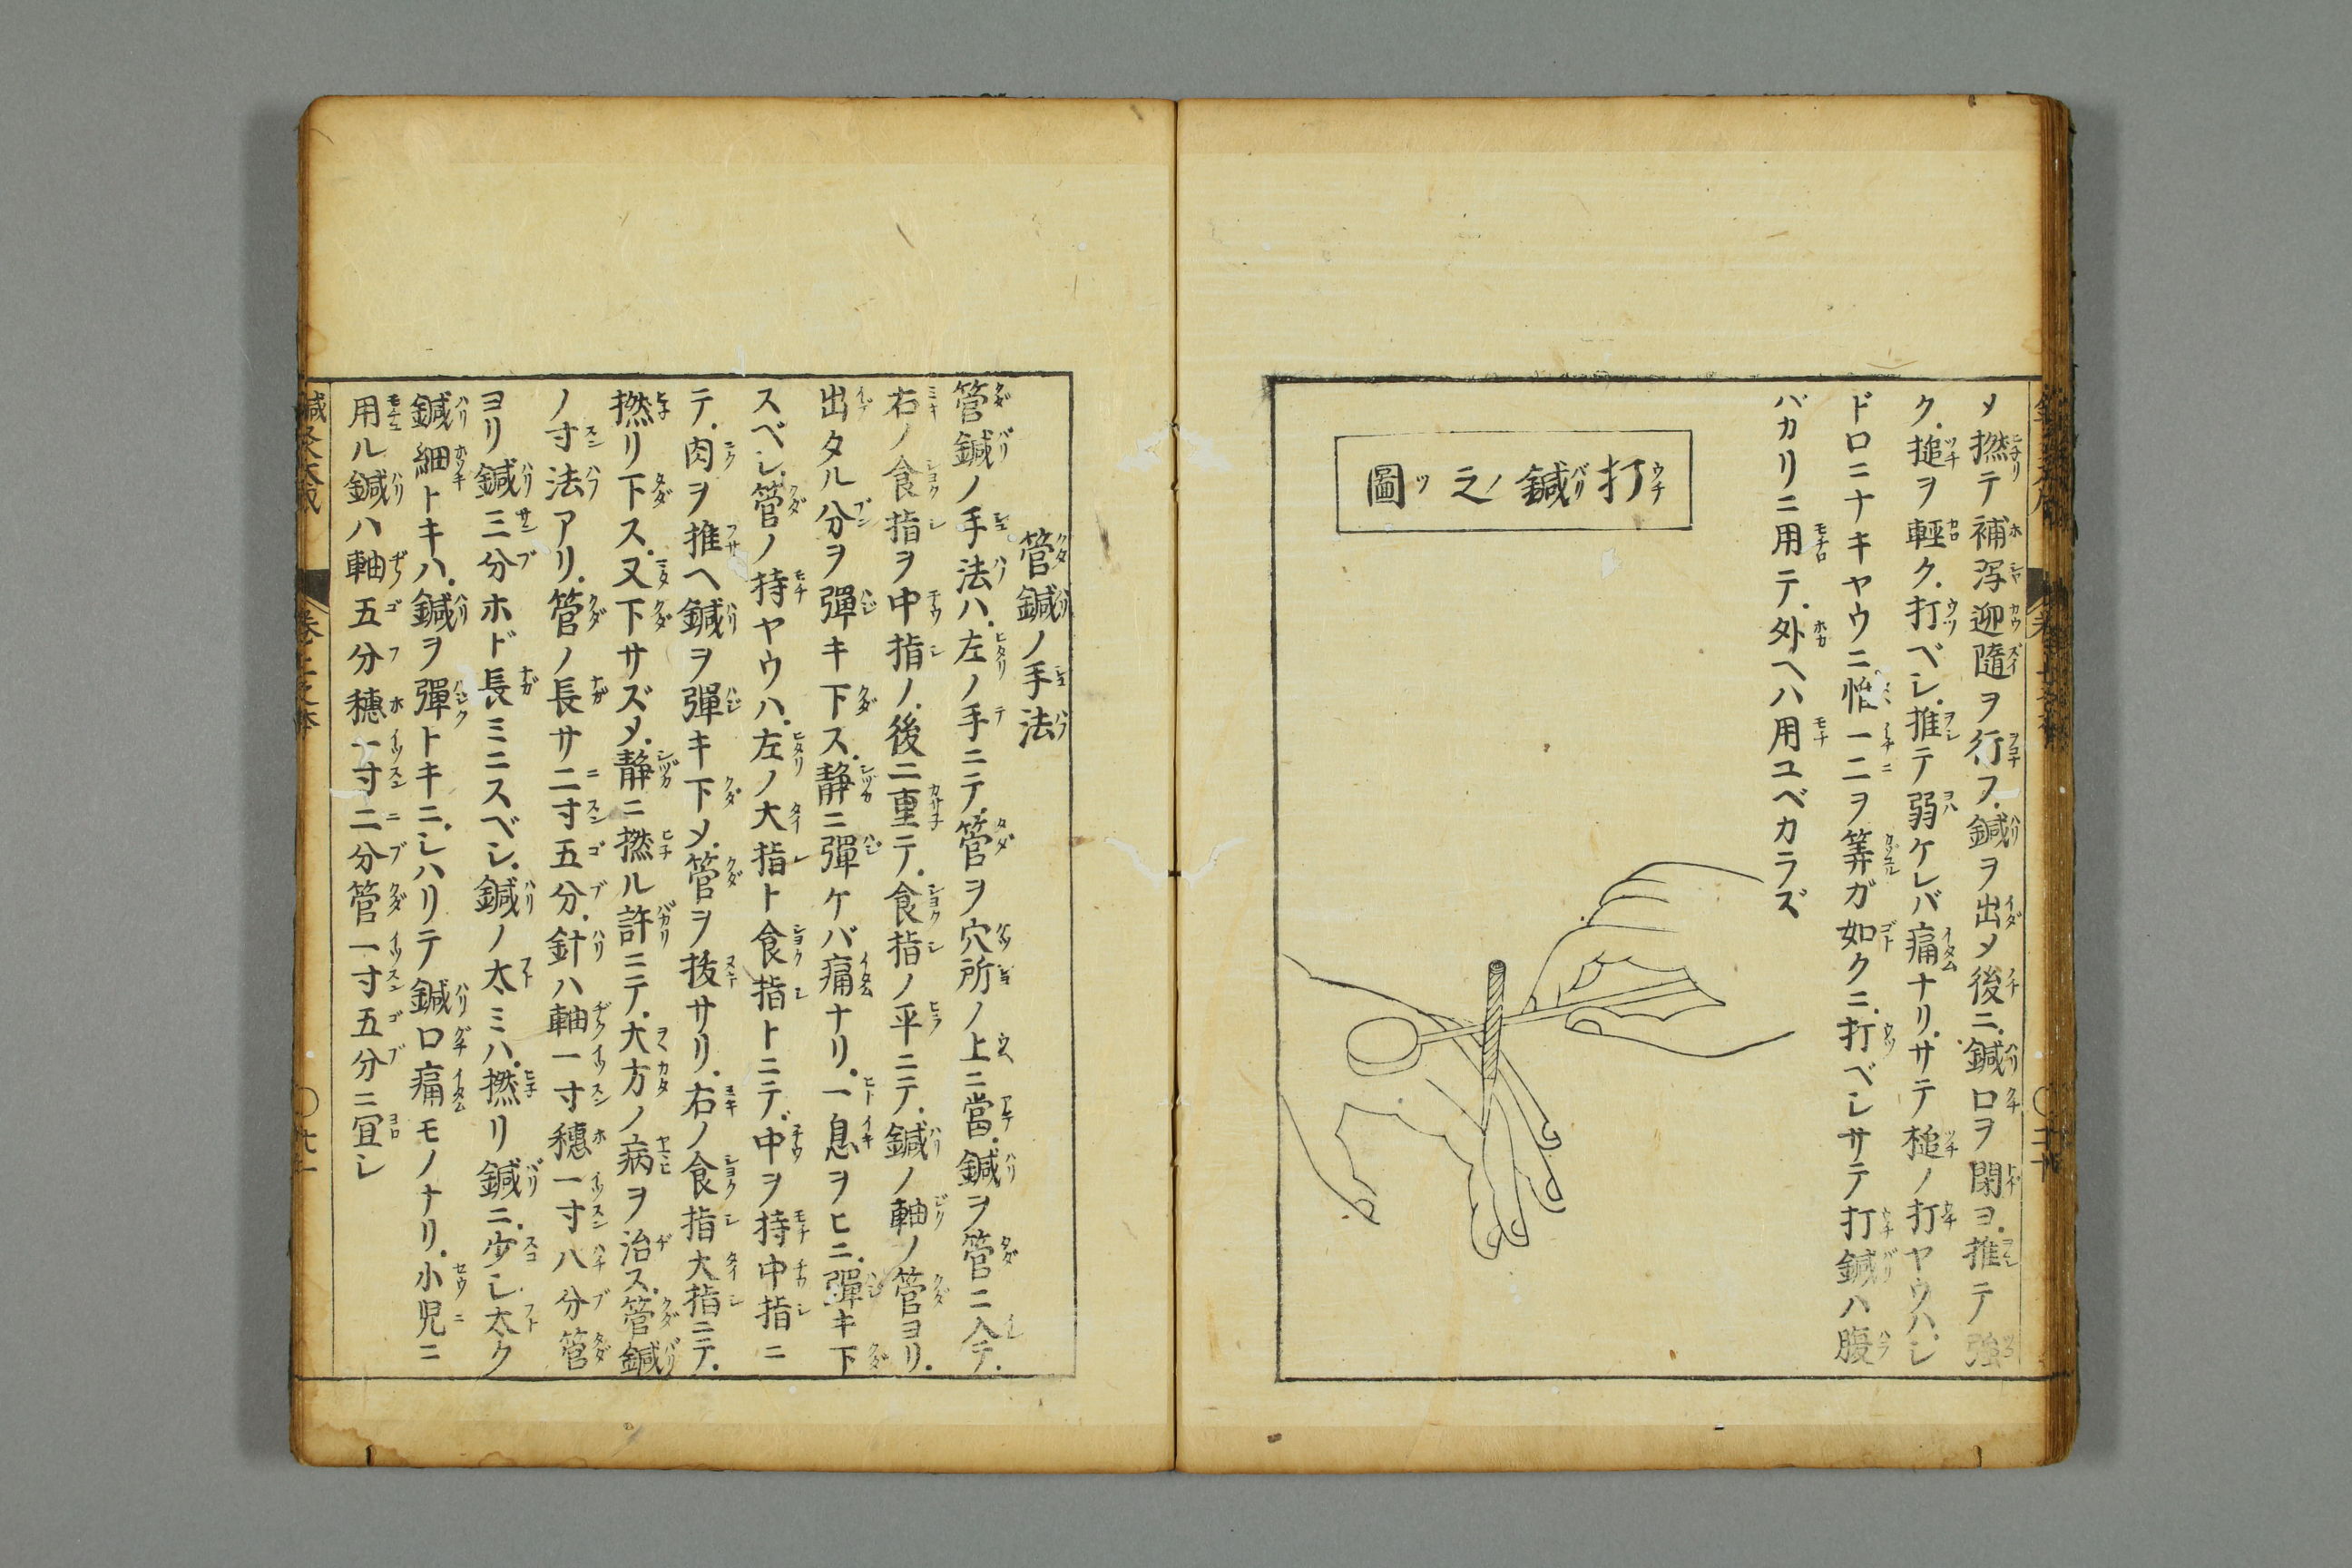 メ撚テ補泻迎隨ヲ行フ.鍼ヲ出メ後ニ.鍼口ヲ閉ヨ.推テ強
ク.槌ヲ輕ク.打ベシ.推テ弱ケレバ痛ナリ.サテ槌ノ打ヤウハ.シ
ドロニナキヤウニ一二ヲ筭ガ如クニ.打ベシサテ打鍼ハ腹
バカリニ用テ.外ヘハ用ユベカラズ
打鍼之圖
管鍼ノ手法
管鍼ノ手法ハ.左ノ手ニテ.管ヲ穴所ノ上ニ當.鍼ヲ管ニ入テ.
右ノ食指ヲ中指ノ.後ニ重テ.食指ノ平ニテ.鍼ノ軸ノ管ヨリ.
出タル分ヲ彈キ下ス.静ニ彈ケバ痛ナリ.一息ヲヒニ.彈キ下
スベシ.管ノ持ヤウハ.左ノ大指ト食指トニテ.中ヲ持中指ニ
テ.肉ヲ推ヘ鍼ヲ彈キ下メ.管ヲ抜サリ.右ノ食指大指ニテ.
撚リ下ス.又下サズメ.静ニ撚ル許ニテ.大方ノ病ヲ治ス.管鍼
ノ寸法アリ.管ノ長サ二寸五分.針ハ軸一寸穗一寸八分管
ヨリ鍼三分ホド長ミニスベシ.鍼ノ太ミハ.撚リ鍼ニ.少シ太ク
鍼細トキハ.鍼ヲ彈トキニ.シハリテ鍼口痛モノナリ.小児ニ
用ル鍼ハ軸五分穗一寸二分管一寸五分ニ冝シ